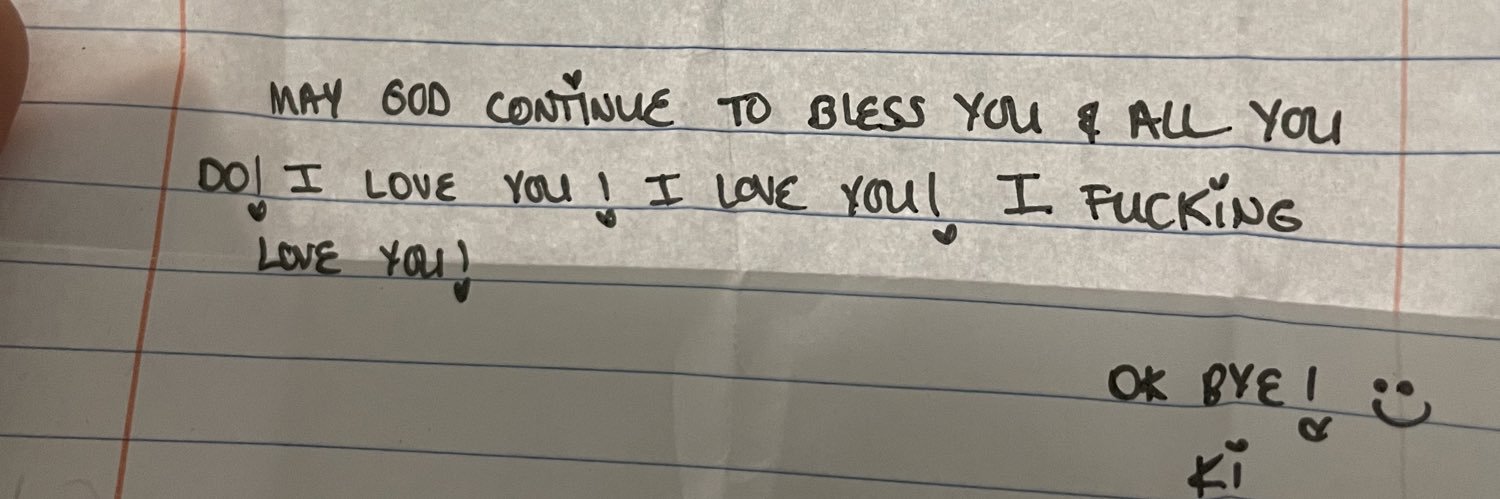 MAY GOD CONTINUE TO BLESS YOU & ALL YOU
DO! I LOVE YOU! I LOVE YOU! I FUCKING
LOVE YOU!
OK BYE! :)
Ki